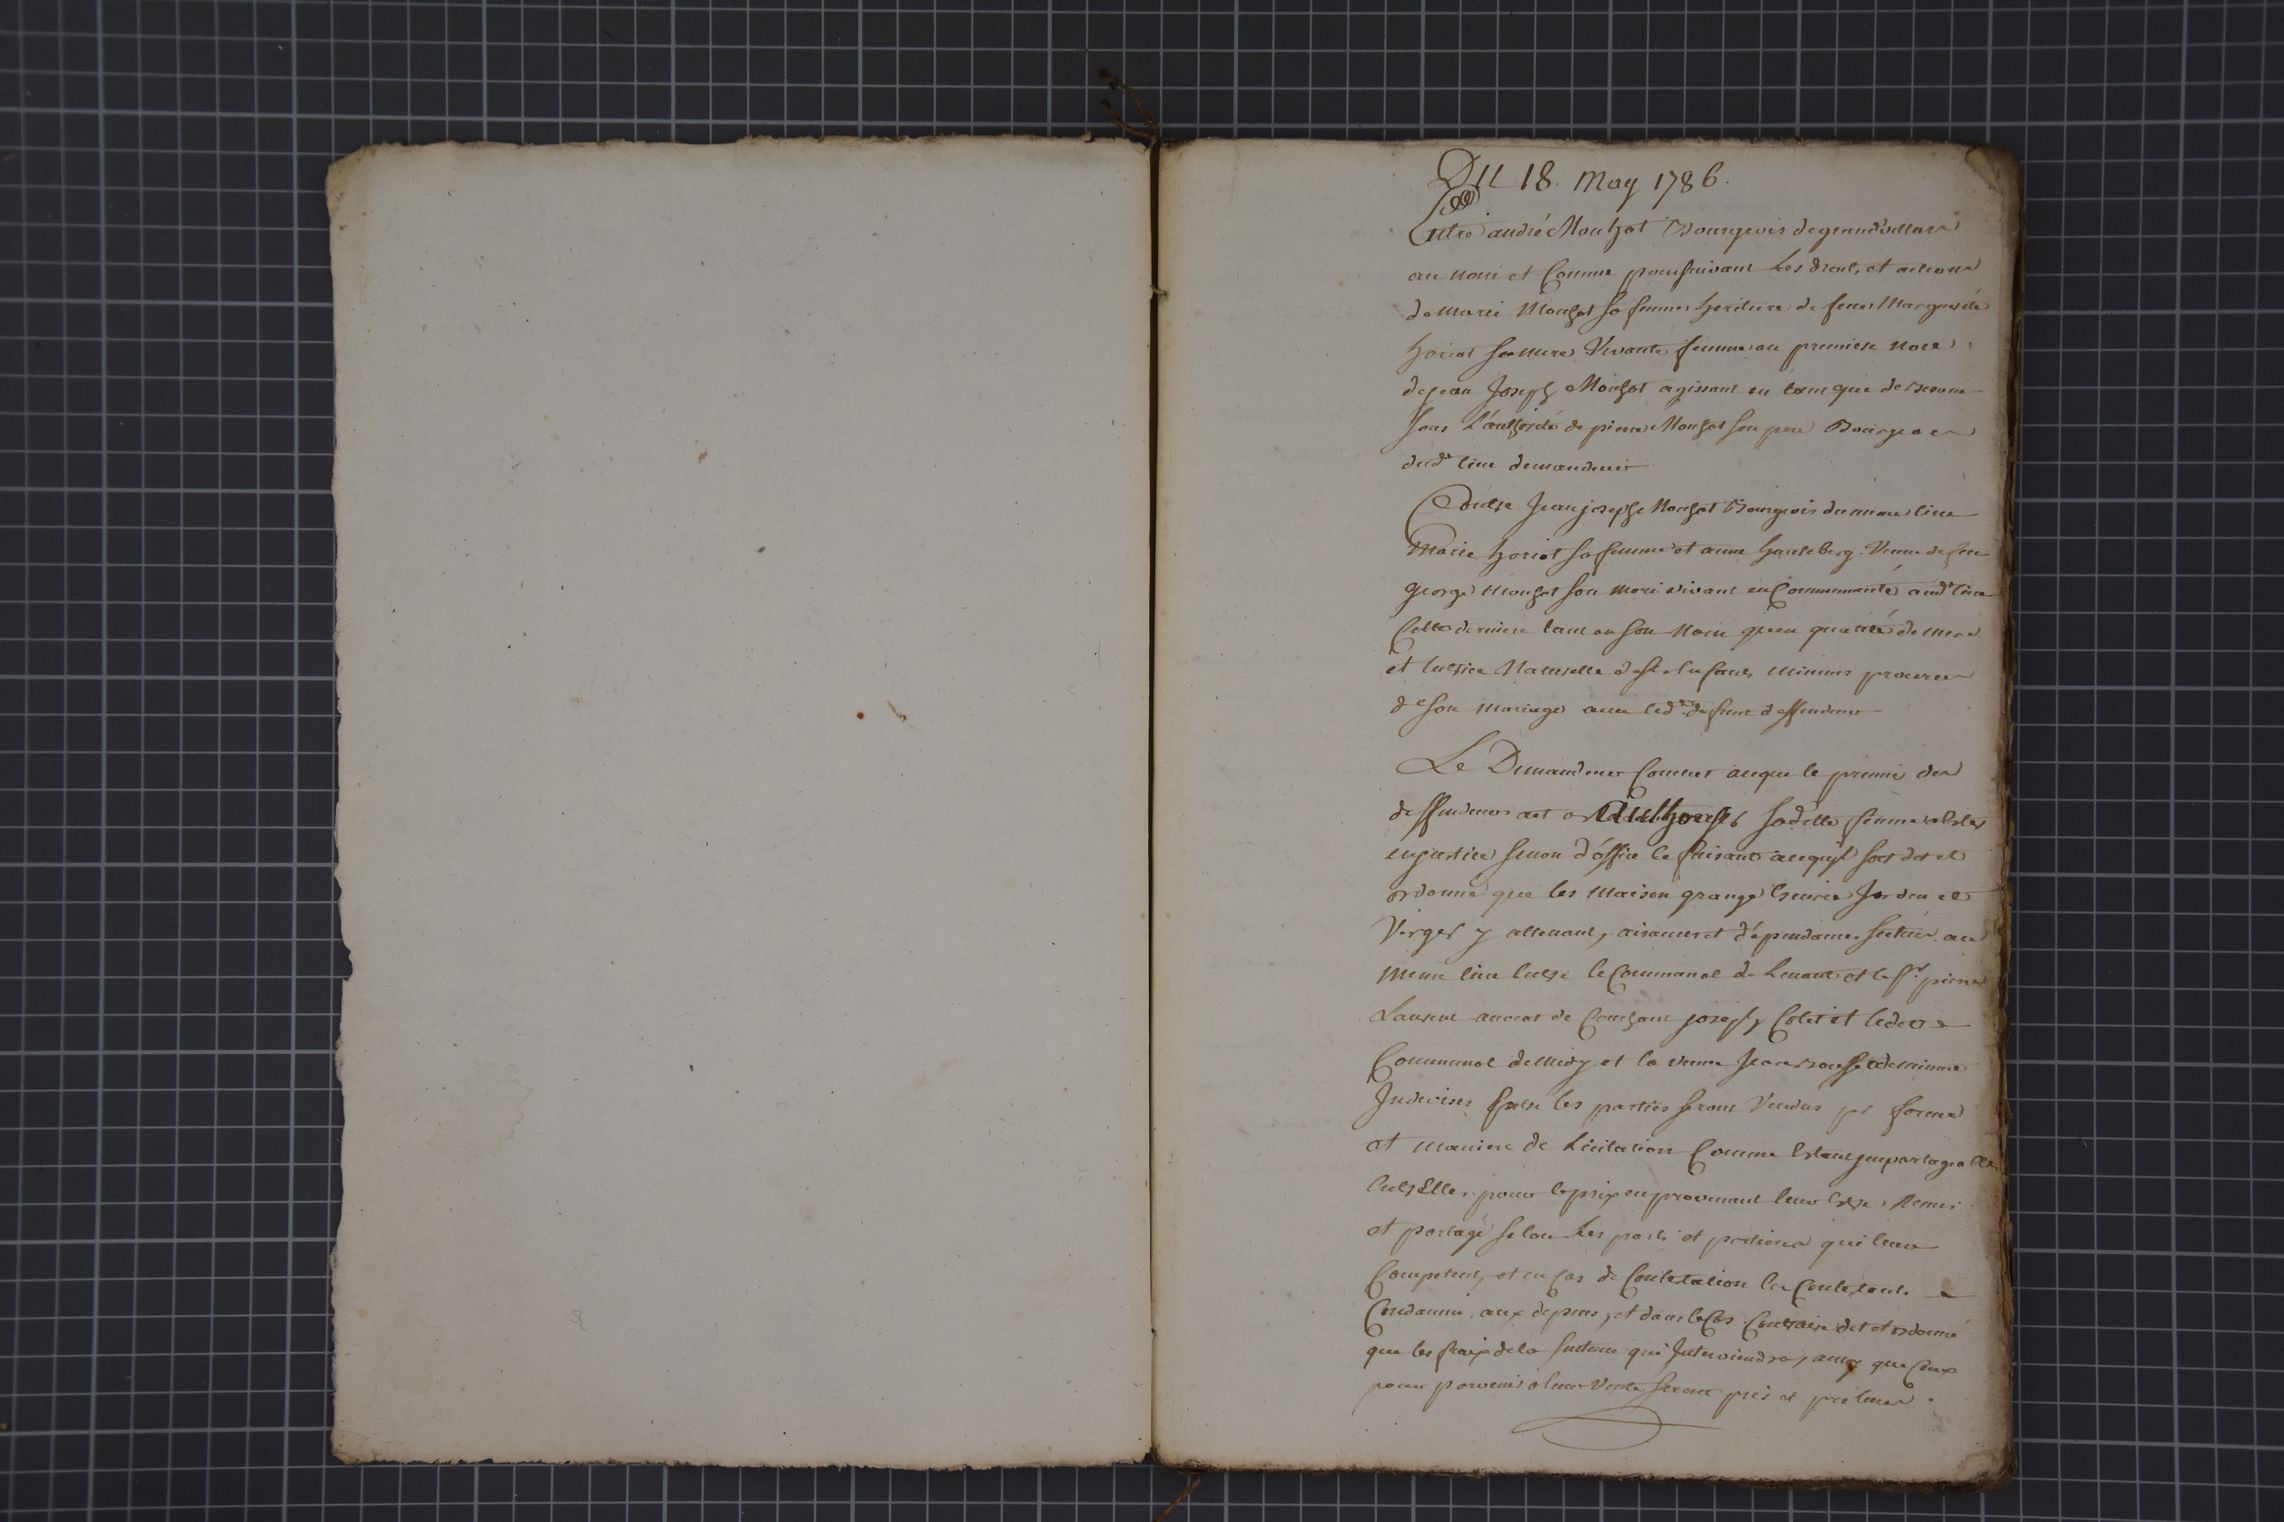 DU 18. May 1786.
Entre andré Mouhat Bourgeois de grandvillars
au nom et Comme poursuivant Les droits et actions
de marie Mouhat sa femme heritiere de feue Marguerite
horiot sa mere Vivante femme au premiere noce
de jean Joseph Mouhat agissant en tant que de besoin
sous L'authorité de pierre Mouhat son pere Bourgeois
dud.t lieu demandeur
Contre Jean joseph Mouhat Bourgeois du meme lieu
Marie horiot sa femme et anne Veuve de feu
george mouhat son mari vivant en Communauté aud.t lieu
Cette derniere tant en son Nom qu'en qualité de mere
et tutrice Naturelle de ses Enfants mineurs procréés
de son mariage avec led.t defunt deffendeurs
Le Demandeur Conclut à ce que le premier des
deffendeurs ait a Authoriser sad.e femme a Ester
en justice sinon d'office ce faisant à ce qu'il soit dit et
ordonné que les Maison grange Ecurie Jardin et
Verger y attenant, aisances et dépendances scitués au
meme lieu Entre le Communal de Levant et le S.r pierre
Laurent avocat de Couchant joseph Colet et led.
Communal de Midy et la veuve Jean de minuit
Indivises Entre les parties seront Vendus pr forme
et maniere de Licitation Comme Etant impartageables
Entr'Elles, pour le prix en provenant leur Etre Remis
et partagé selon Les parts et portions qui leur
Competent, et en Cas de Contestation les Contestants
Condamné aux depens, et dans le Cas Contraire dit et ordonné
que les fraix de la sentence qui Interviendra, ainsy que Ceux
pour parvenir a leur Vente seront pris et prélevés.